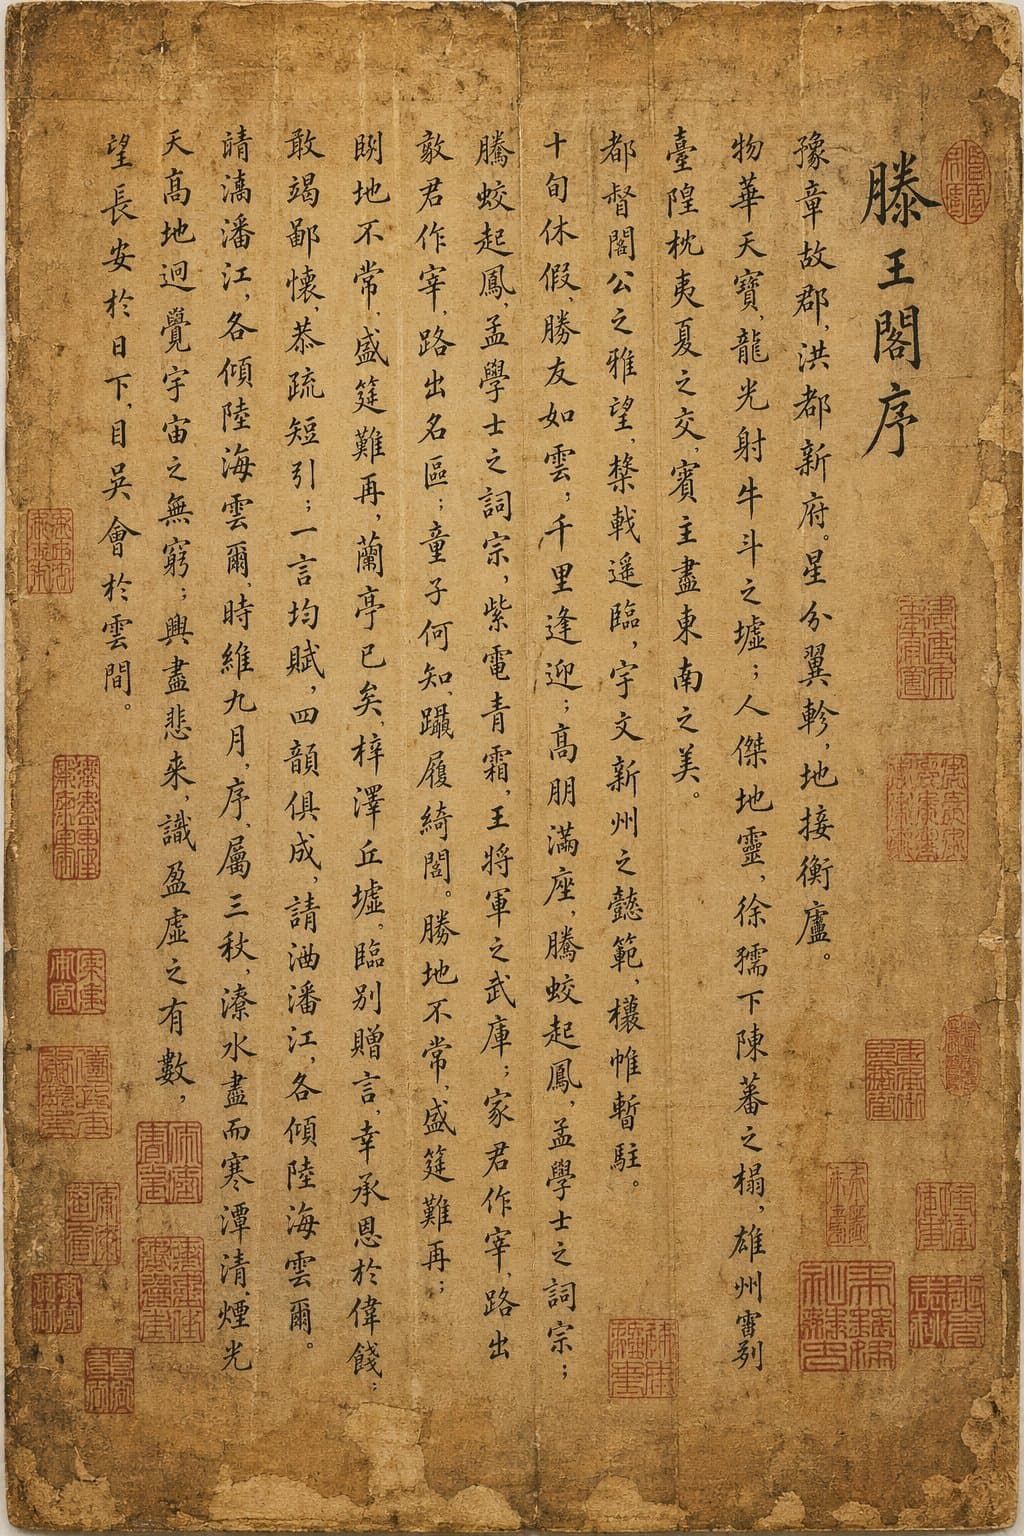 滕王閣序
豫章故郡,洪都新府。星分翼軫,地接衡廬。
物華天寶,龍光射牛斗之墟;人傑地靈,徐孺下陳蕃之榻,雄州
臺隍枕夷夏之交,賓主盡東南之美。
都督閣公之雅望,棨戟遥臨,宇文新州之懿範,檴帷暫駐。
十旬休假,勝友如雲,千里逢迎;高朋滿座,騰蛟起鳳,孟學士之詞宗;
騰蛟起鳳,孟學士之詞宗,紫電青霜,王將軍之武庫;家君作宰,路出
君作宰,路出名區;童子何知,躡履綺閣。勝地不常,盛筵難再;
地不常,盛筵難再,蘭亭已矣,梓澤丘墟。臨別贈言,幸承恩於偉餞;
敢竭鄙懷,恭疏短引;一言均賦,四韻俱成,請洒潘江,各傾陸海雲爾。
潘江,各傾陸海雲爾,時維九月,序,屬三秋,潦水盡而寒潭清,煙光
天高地迥覺宇宙之無窮;興盡悲來,識盈虛之有數,
望長安於日下,目吳會於雲間。